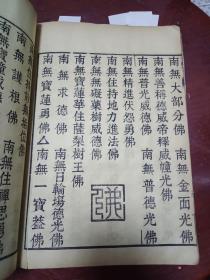 南無大部分佛 南無金面光佛
南無善稱德威帝釋威幢光佛
南無普光威德佛 南無普德光佛
南無精進伏怨勇佛
南無無礙藥樹威德佛
南無住持地力進法佛
南無寶蓮華住薩梨樹王佛
南無求德佛 南無日輪場德光佛
南無寶蓮勇佛 南無一寶葢佛
南無護根佛 南無住禪思勇佛